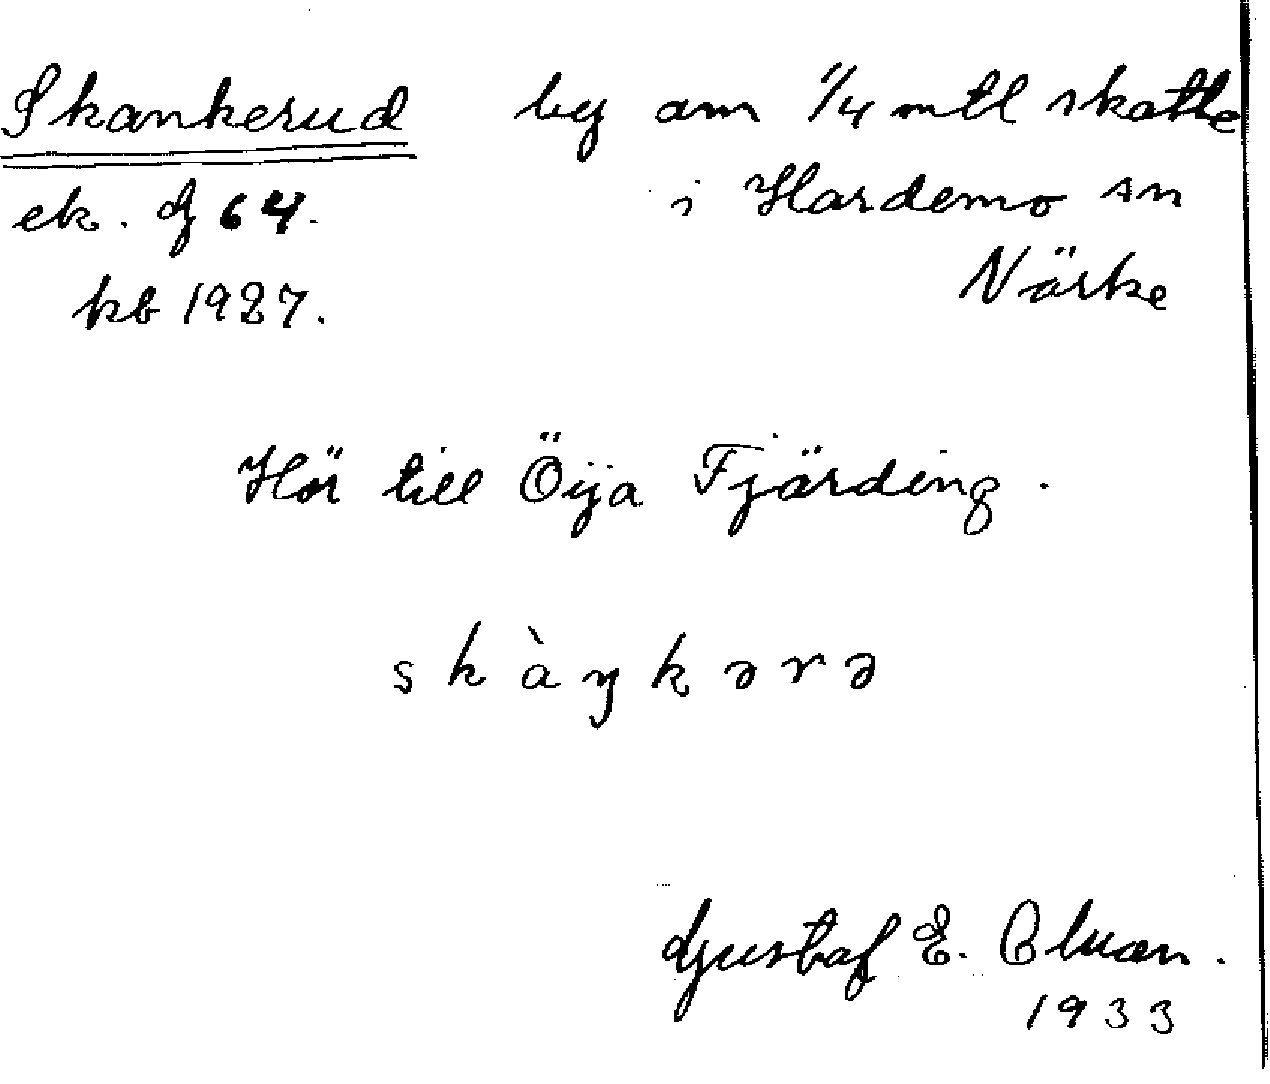 Skankerud by om 1/4 mtl skatte
ek. G 64. i Hardemo sn
kb 1927. Närke
Hör till Öija Fjärding.
skàŋkərə
Gustaf E.
1933